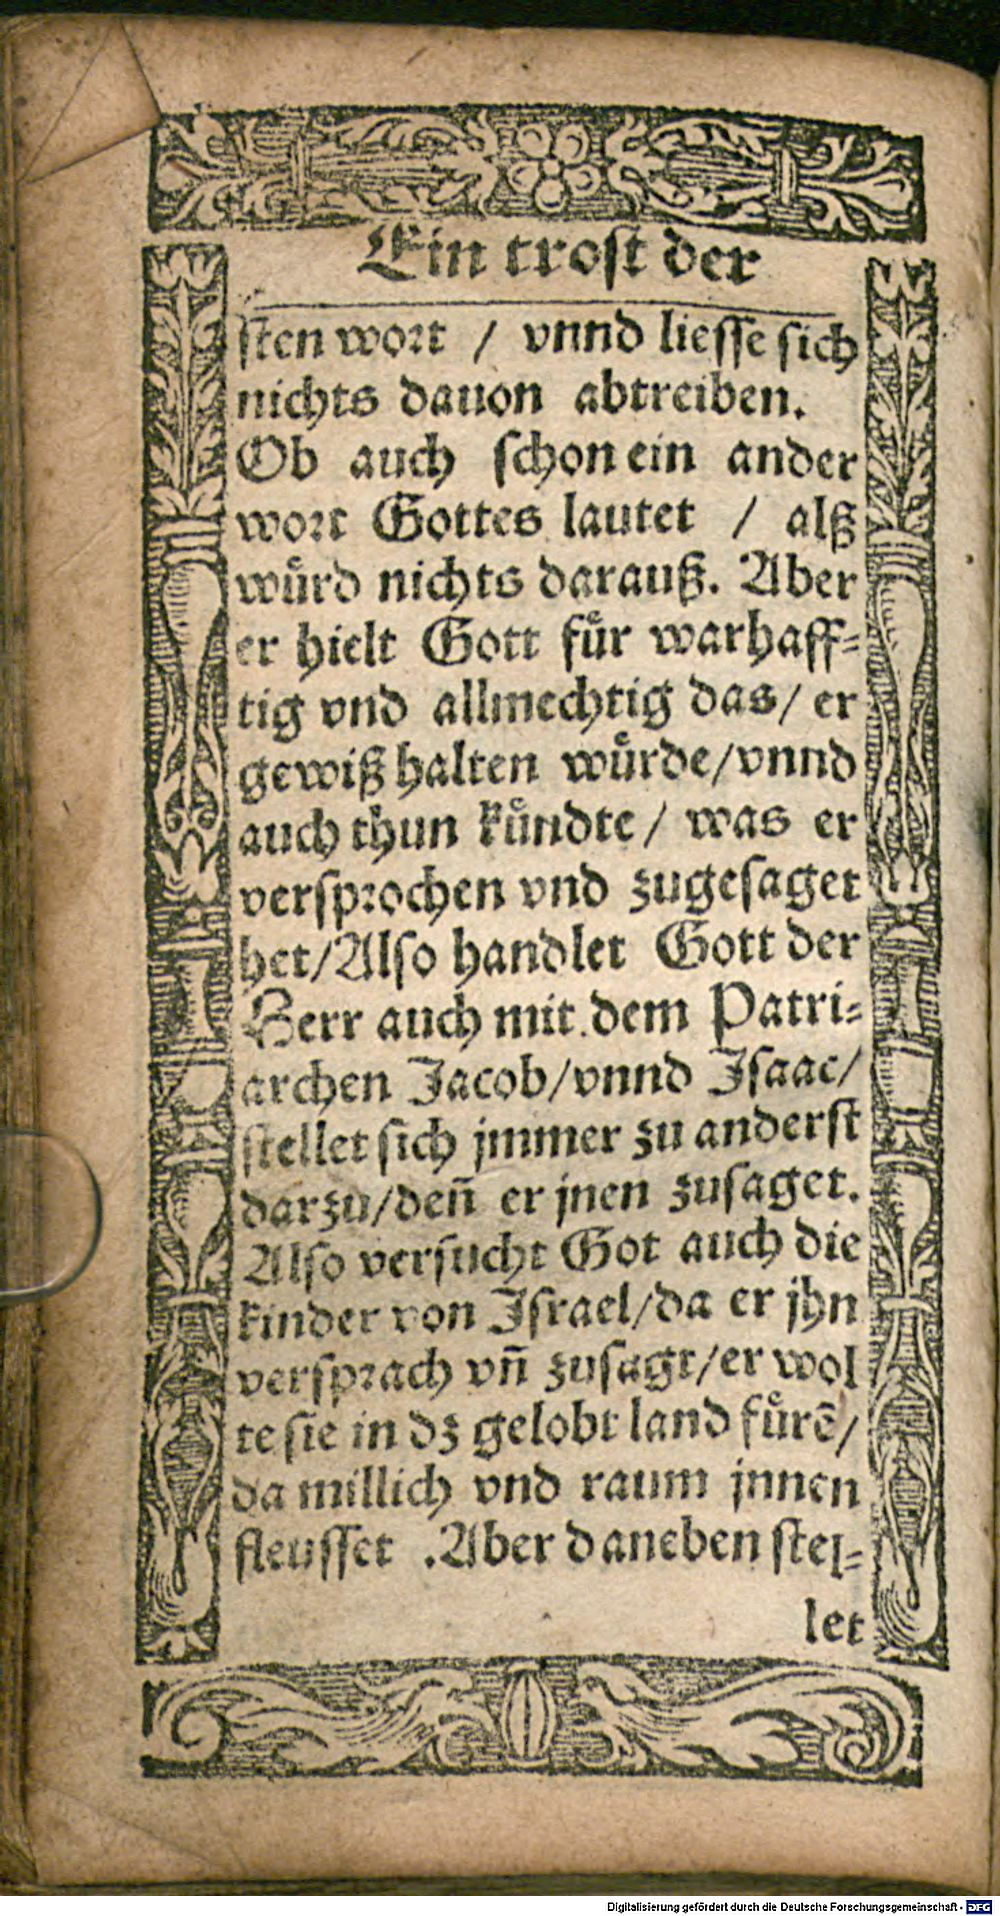 Ein trost der
sten wort / vnnd liesse sich
nichts dauon abtreiben.
Ob auch schon ein ander
wort Gottes lautet / alß
wuͤrd nichts darauß. Aber
er hielt Gott fuͤr warhaff-
tig vnd allmechtig das/ er
gewiß halten wuͤrde/vnnd
auch thun kuͤndte/ was er
versprochen vnd zugesaget
het/Also handlet Gott der
Herr auch mit dem Patri-
archen Jacob/vnnd Isaac/
stellet sich jmmer zu anderst
darzu/deñ er jnen zusaget.
Also versucht Got auch die
kinder von Israel/da er jhn
versprach vñ zusagt/er wol
te sie in dz gelobt land fuͤrē/
da millich vnd raum jnnen
fleusset .Aber daneben stel-
let
Digitalisierung gefördert durch die Deutsche Forschungsgemeinschaft - DFG